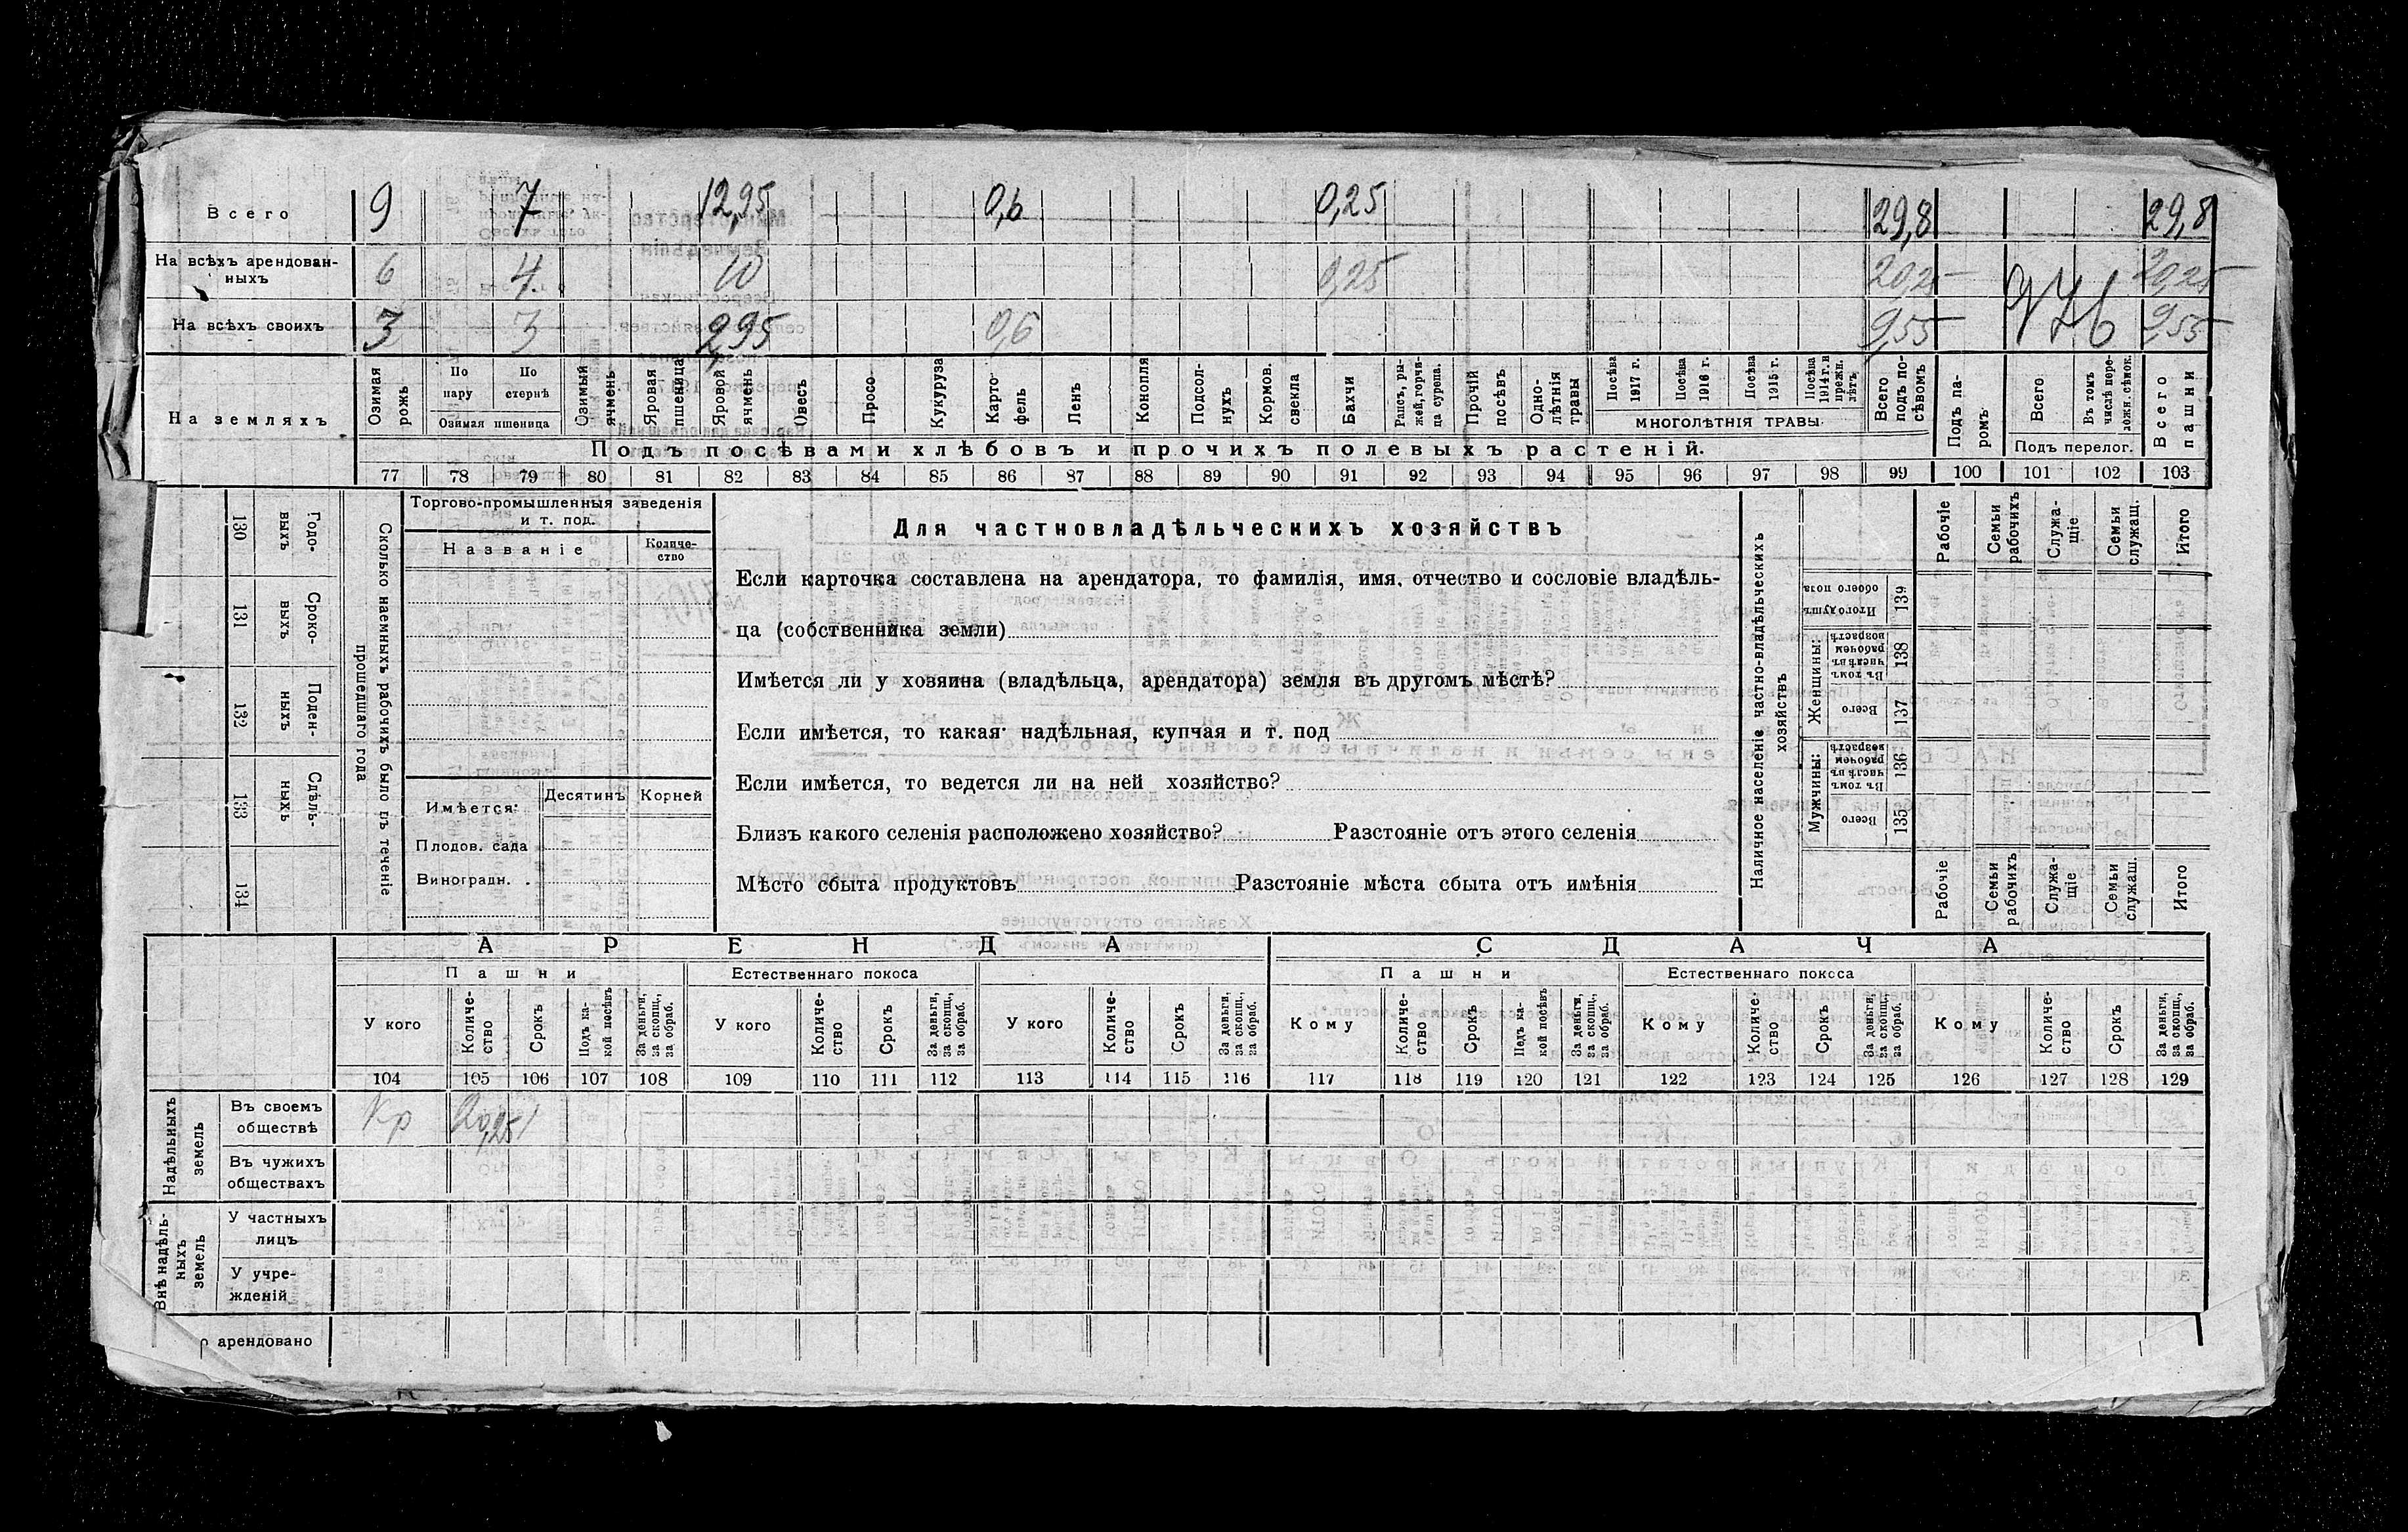 Всего 9 7 12,95 0,6 0,25 29,8 29,8
На всѣхъ арендован-
ныхъ 6 4 10 0,25 20,25 20,25
На всѣхъ своихъ 3 3 2,95 0,6 9,55 9,55
На земляхъ
Озимая рожь
По пару
По стернѣ
Озимая пшеница
Озимый ячмень
Яровая пшеница
Яровой ячмень
Овесъ
Просо
Кукуруза
Карто-
фель
Ленъ
Конопля
Подсол-
нухъ
Кормов.
свекла
Бахчи
Рапсъ, ры-
жей, горчи-
ца сурепа.
Прочій
посѣвъ
Одно-
лѣтнія
травы
Посѣва
1917 г.
Посѣва
1916 г.
Посѣва
1915 г.
Посѣва
1914 г. и
прежн.
лѣтъ
МНОГОЛѢТНІЯ ТРАВЫ
Всего
подъ по-
сѣвомъ
Подъ па-
ромъ
Всего
Въ томъ
числѣ пере-
ложн. сѣнок.
Подъ перелог.
Всего
пашни
Подъ посѣвами хлѣбовъ и прочихъ полевыхъ растеній.
77 78 79 80 81 82 83 84 85 86 87 88 89 90 91 92 93 94 95 96 97 98 99 100 101 102 103
130 Годо-
выхъ
131 Сроко-
выхъ
132 Поден-
ныхъ
133 Сдѣль-
ныхъ
134
Сколько наемныхъ рабочихъ было въ теченіе
прошедшаго года
Торгово-промышленныя заведенія
и т. под.
Названіе
Количе-
ство
Имѣется: Десятинъ Корней
Плодов. сада
Виноградн.
Для частновладѣльческихъ хозяйствъ
Если карточка составлена на арендатора, то фамилія, имя, отчество и сословіе владѣль-
ца (собственника земли)
Имѣется ли у хозяина (владѣльца, арендатора) земля въ другомъ мѣстѣ?
Если имѣется, то какая: надѣльная, купчая и т. под
Если имѣется, то ведется ли на ней хозяйство?
Близъ какого селенія расположено хозяйство? Разстояніе отъ этого селенія
Мѣсто сбыта продуктовъ Разстояніе мѣста сбыта отъ имѣнія
Наличное населеніе частно-владѣльческихъ
хозяйствъ
Рабочіе
Семьи
рабочихъ
Служа-
щіе
Семьи
служащ.
Итого
Итого душъ
обоего пола
139
Женщины:
Въ томъ
числѣ въ
рабочемъ
возрастѣ
138
Всего
137
Мужчины:
Въ томъ
числѣ въ
рабочемъ
возрастѣ
136
Всего
135
Рабочіе
Семьи
рабочихъ
Служа-
щіе
Семьи
служащ.
Итого
АРЕНДА СДАЧА
Пашни Естественнаго покоса Пашни Естественнаго покоса
У кого
Количе-
ство
Срокъ
Подъ ка-
кой посѣвъ
За деньги,
за скопщ.,
за обраб.
У кого
Количе-
ство
Срокъ
За деньги,
за скопщ.,
за обраб.
У кого
Количе-
ство
Срокъ
За деньги,
за скопщ.,
за обраб.
Кому
Количе-
ство
Срокъ
Подъ ка-
кой посѣвъ
За деньги,
за скопщ.,
за обраб.
Кому
Количе-
ство
Срокъ
За деньги,
за скопщ.,
за обраб.
Кому
Количе-
ство
Срокъ
За деньги,
за скопщ.,
за обраб.
104 105 106 107 108 109 110 111 112 113 114 115 116 117 118 119 120 121 122 123 124 125 126 127 128 129
Надѣльныхъ
земель
Въ своемъ
обществѣ Кр 20,25
Въ чужихъ
обществахъ
Внѣ надѣль-
ныхъ
земель
У частныхъ
лицъ
У учре-
жденій
арендовано